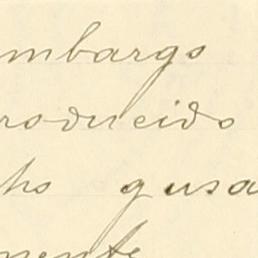 mbargo
roducido
ho gusa
mente